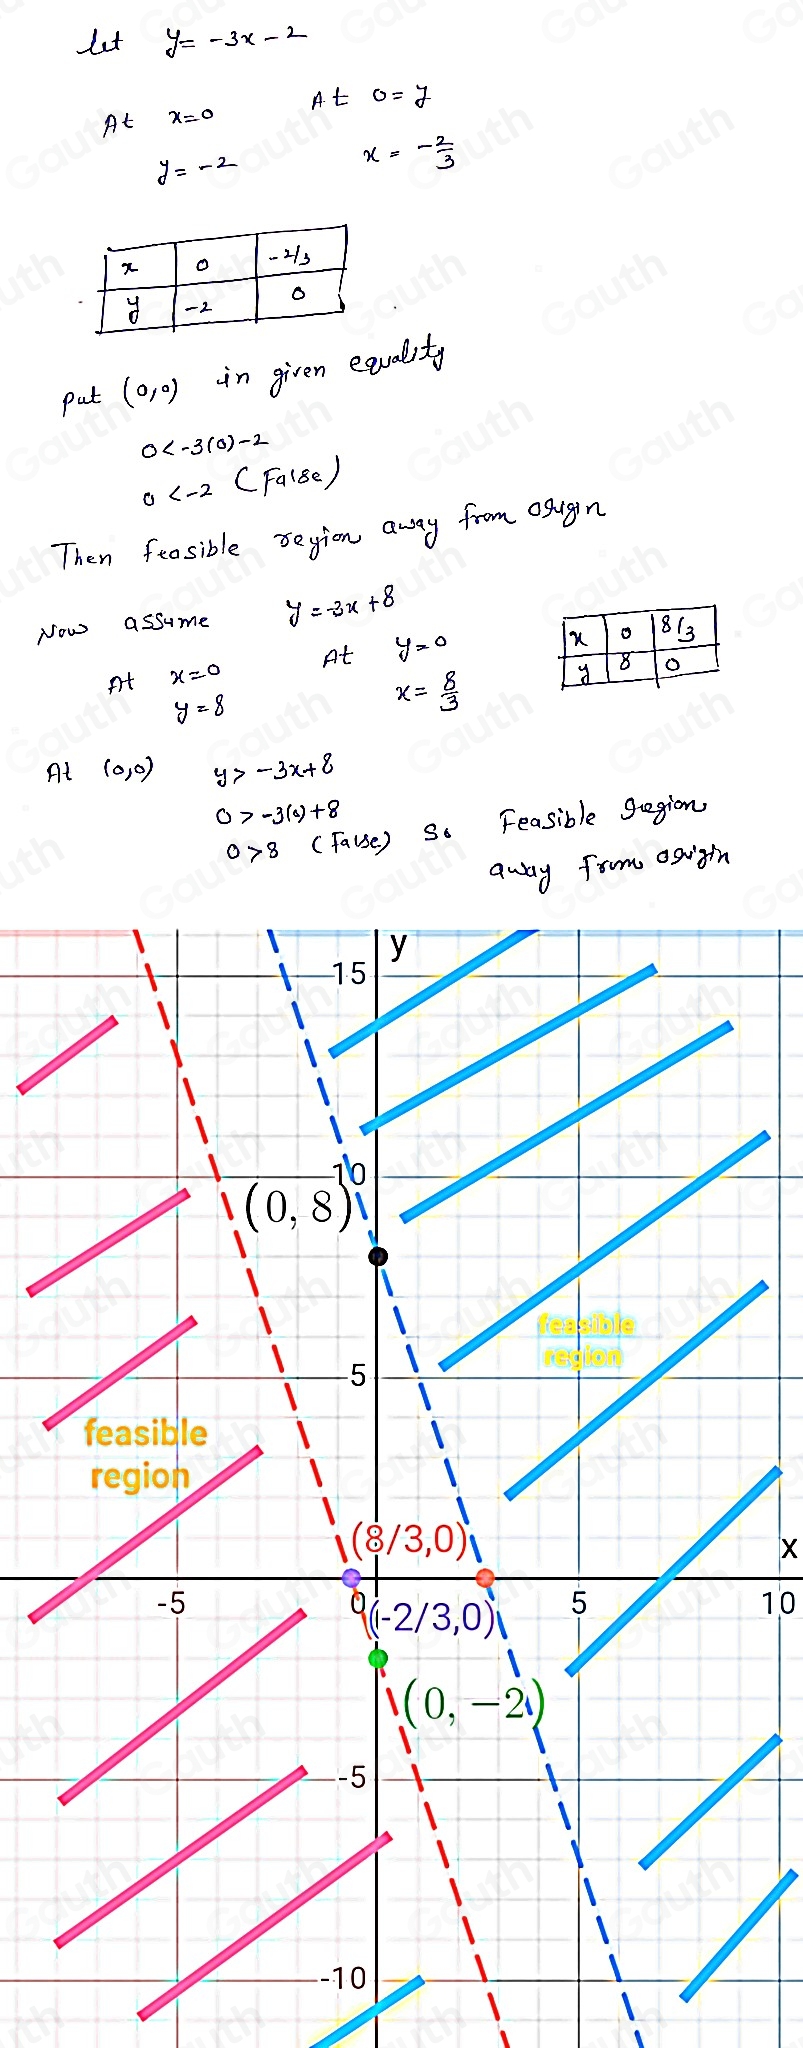 let y = -3x - 2
At x=0 At 0 = y
y = -2 x = -2/3
x 0 -2/3
y -2 0
put (0,0) in given equality
0 < -3(0)-2
0 < -2 (False)
Then feasible region away from origin
Now assume y = -3x + 8
At x=0 At y=0
y = 8 x = 8/3
x 0 8/3
y 8 0
At (0,0) y > -3x+8
0 > -3(0)+8
0 > 8 (False) So Feasible region
away from origin
y
15
10
(0, 8)
feasible
region
5
feasible
region
(8/3,0)
x
-5 0 5 10
(-2/3,0)
(0, −2)
-5
-10
Gauth